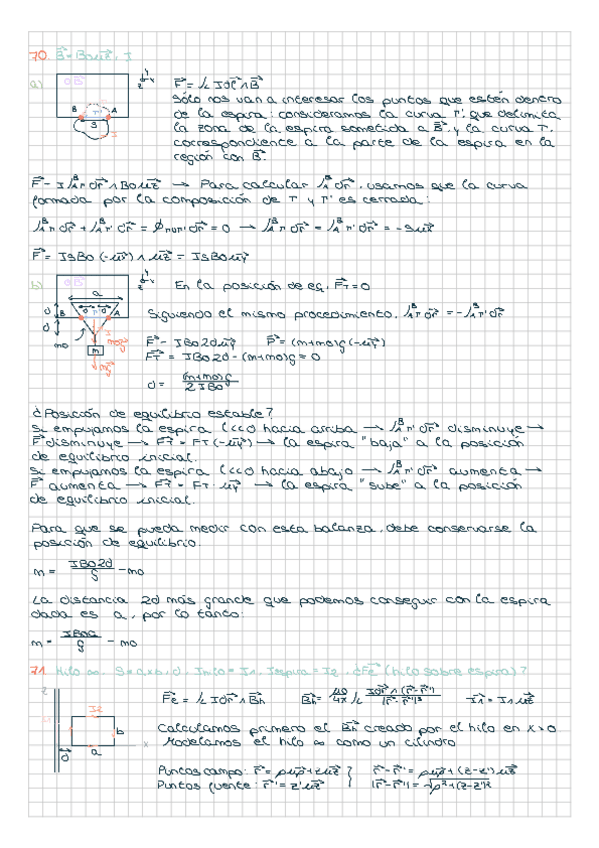 70. B⃗ = B₀u⃗z, I
a)
B A
S I
F⃗ = ∫c I dr⃗ ∧ B⃗
Sólo nos van a interesar los puntos que estén dentro
de la espira: consideramos la curva Γ', que delimita
la zona de la espira sometida a B⃗, y la curva Γ,
correspondiente a la parte de la espira en la
región con B⃗.
F⃗ = I ∫ᴬᴮ Γ dr⃗ ∧ B₀u⃗z → Para calcular ∫ᴬᴮ dr⃗, usamos que la curva
formada por la composición de Γ y Γ' es cerrada:
∫ᴬᴮ Γ dr⃗ + ∫ᴬᴮ Γ' dr⃗ = ∮ΓUΓ' dr⃗ = 0 →
b)
a
B d d A
m₀
m
En la posición de eq, F⃗T = 0
Siguiendo el mismo procedimiento,
F⃗ = IB₀2d u⃗y P⃗ = (m+m₀)g(-u⃗y)
F⃗T = IB₀2d - (m+m₀)g = 0
d = (m+m₀)g / 2IB₀
¿Posición de equilibrio estable?
Si empujamos la espira (<<<) hacia arriba → ∫ᴬᴮ Γ' dr⃗ disminuye →
F⃗ disminuye → F⃗T = FT(-u⃗y) → la espira "baja" a la posición
de equilibrio inicial.
Si empujamos la espira (<<<) hacia abajo → ∫ᴬᴮ Γ' dr⃗ aumenta →
F⃗ aumenta → F⃗T = FT · u⃗y → la espira "sube" a la posición
de equilibrio inicial.
Para que se pueda medir con esta balanza, debe conservarse la
posición de equilibrio.
m = IB₀2d / g - m₀
La distancia 2d más grande que podemos conseguir con la espira
dada es a, por lo tanto:
m = IB₀a / g - m₀
71. Hilo ∞. S = a×b, d. Ihilo = I₁, Iespira = I₂. ¿F⃗e (hilo sobre espira)?
z
I₂
b
x
d a
F⃗e = ∫c I dr⃗ ∧ B⃗h B⃗h = μ₀/4π ∫c I dr⃗' ∧ (r⃗-r⃗') / |r⃗-r⃗'|³ I⃗₁ = I₁u⃗z
Calculamos primero el B⃗h creado por el hilo en x>0
Modelamos el hilo ∞ como un cilindro
Puntos campo: r⃗ = ρu⃗ρ + zu⃗z } r⃗-r⃗' = ρu⃗ρ + (z-z')u⃗z
Puntos fuente: r⃗' = z'u⃗z |r⃗-r⃗'| = √ρ²+(z-z')²